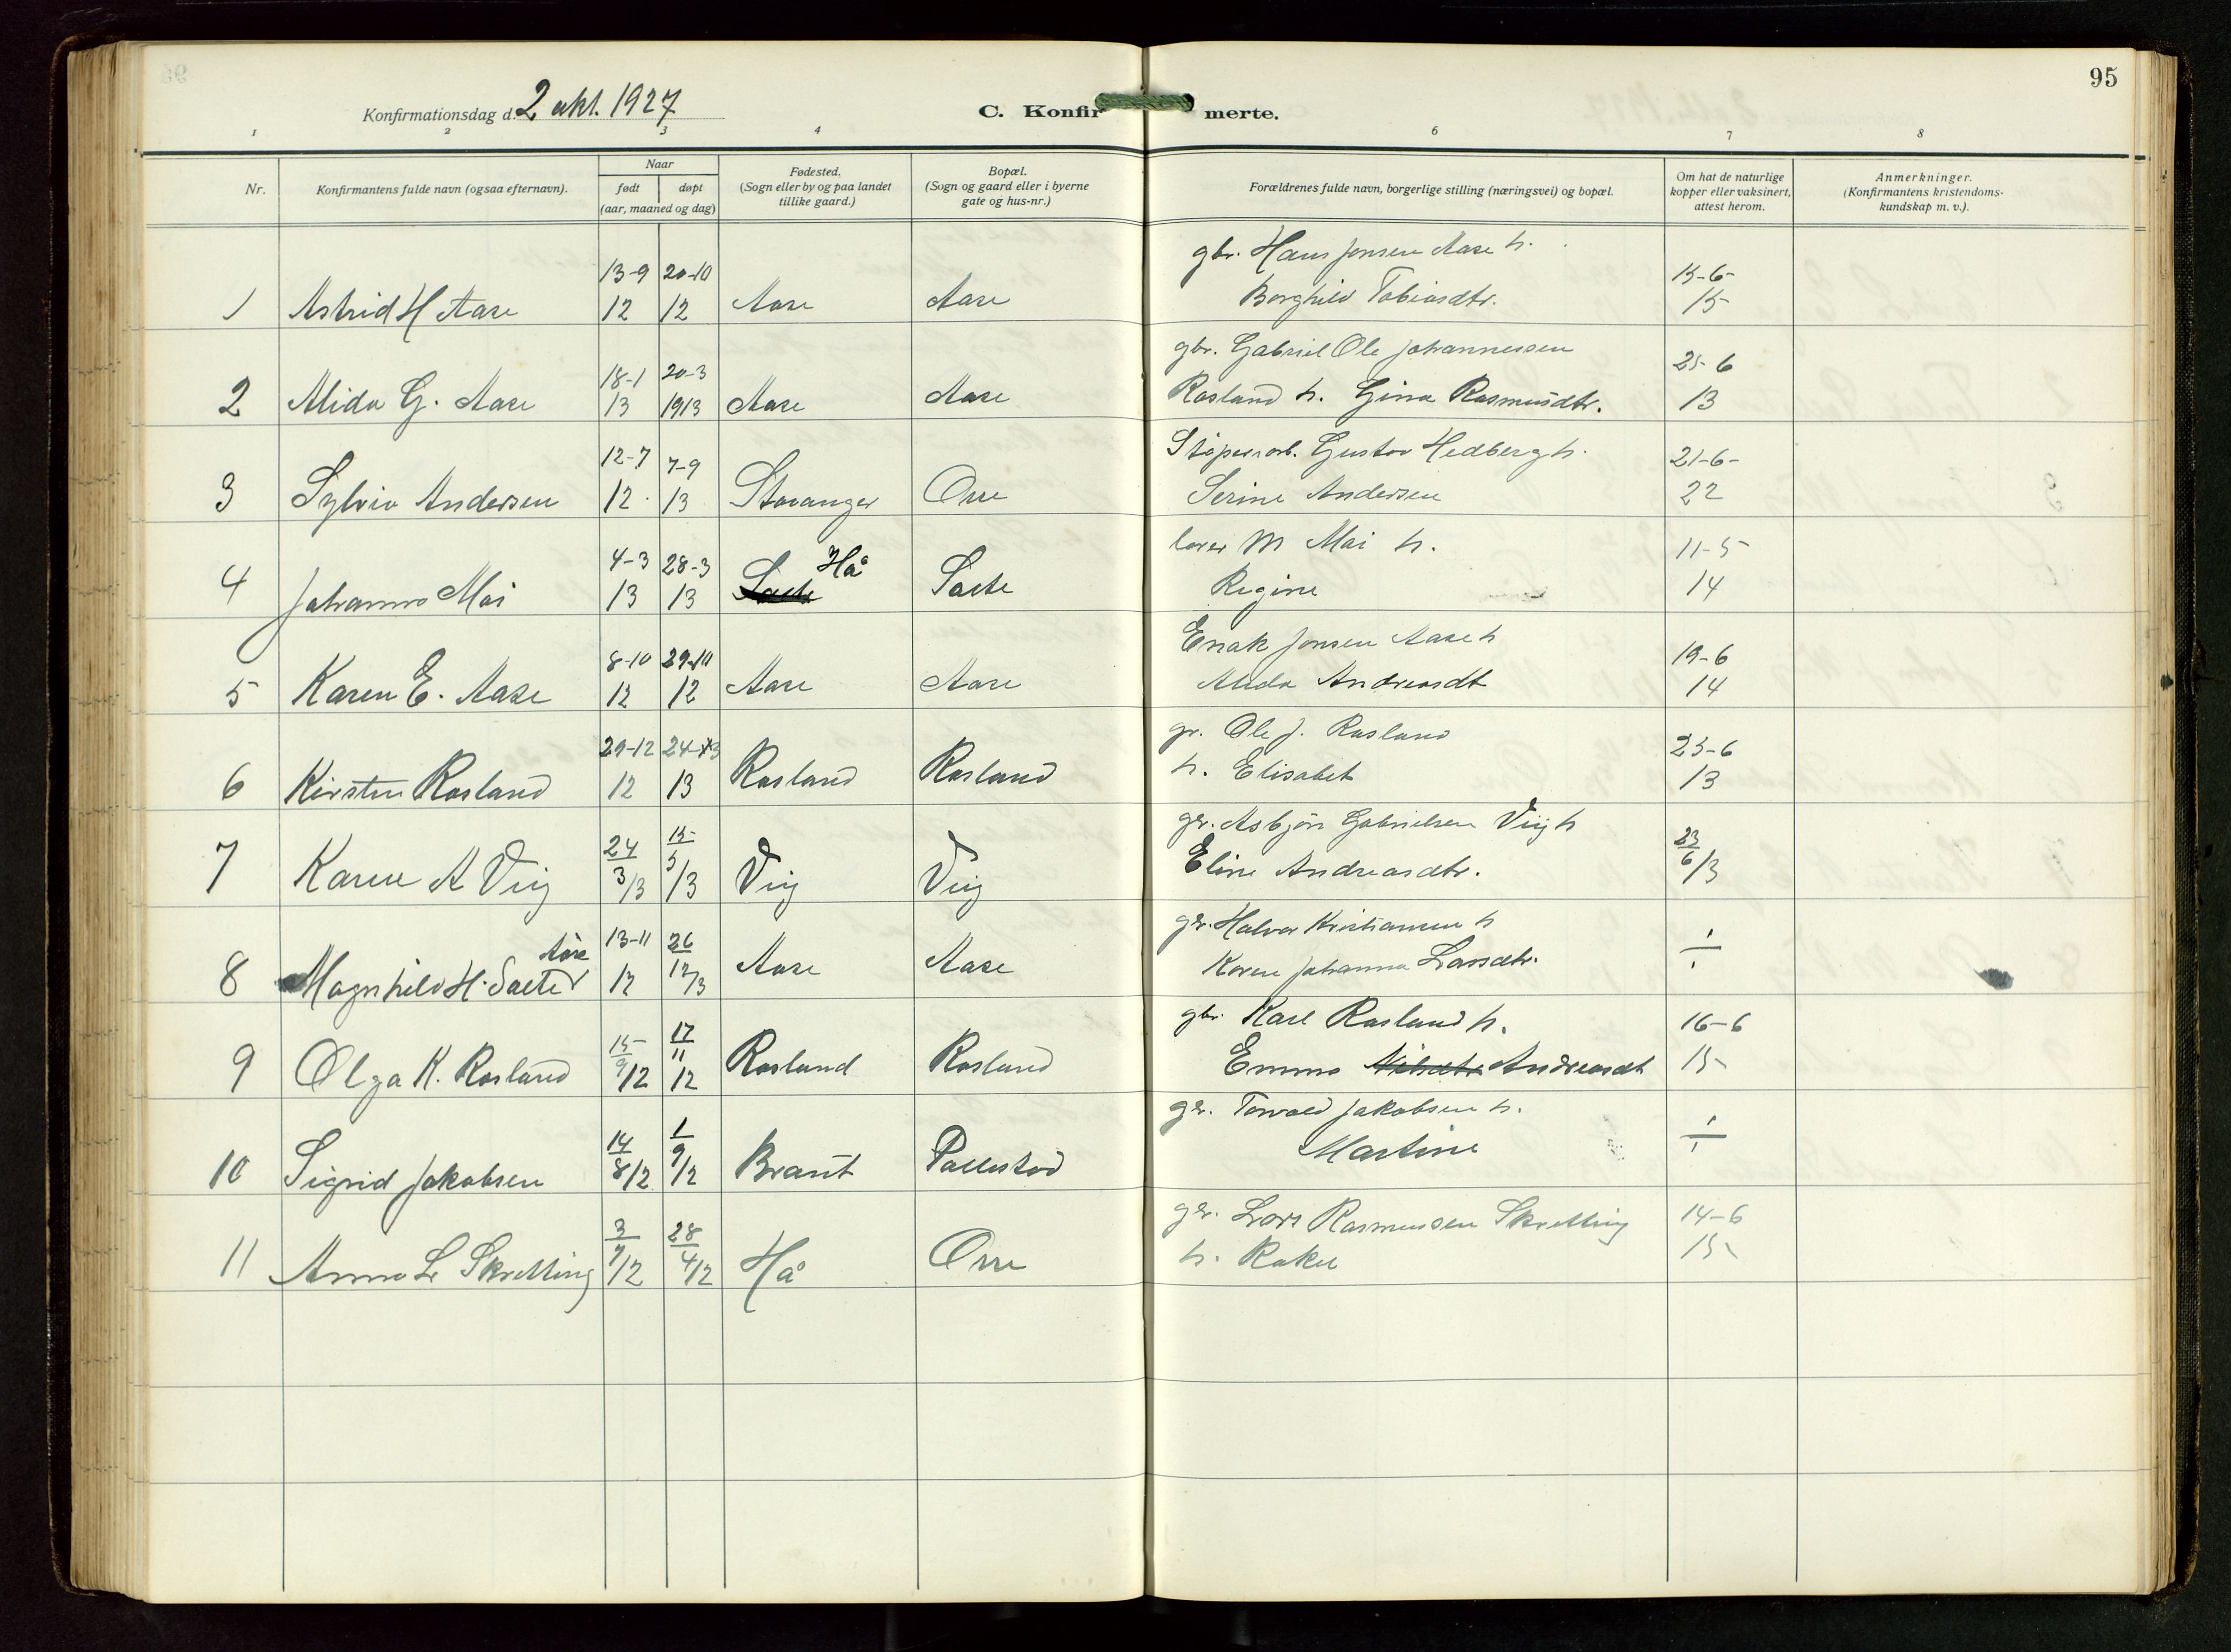 95
Konfirmationsdag d. 2 okt. 1927
C. Konfirmerte.
1 2 3 4 6 7 8
Nr.
Konfirmantens fulde navn (ogsaa efternavn).
Naar
født
døpt
(aar, maaned og dag)
Fødested.
(Sogn eller by og paa landet
tillike gaard.)
Bopæl.
(Sogn og gaard eller i byerne
gate og hus-nr.)
Forældrenes fulde navn, borgerlige stilling (næringsvei) og bopæl.
Om hat de naturlige
kopper eller vaksinert,
attest herom.
Anmerkninger.
(Konfirmantens kristendoms-
kundskap m. v.).
13-9 20-10 gbr. Hans Jonsen Aase h. 15-6-
1 Astrid H Aase 12 12 Aase Aase Borghild Tobiasdtr. 15
18-1 20-3 gbr. Gabriel Ole Johannessen 25-6
2 Alida G. Aase 13 1913 Aase Aase Rosland h. Gina Rasmusdtr. 13
12-7 7-9 Gustav Hedberg h. 21-6-
3 Sylvia Andersen 12 13 Stavanger Orre Serine Andersen 22
4-3 28-3 Hå M Moi h. 11-5
4 Johanna Moi 13 13 Sæte Regine 14
8-10 29-10 Enok Jonsen Aase h 19-6
5 Karen E. Aase 12 12 Aase Aase Alida Andreasdt 14
29-12 24-3 gr. Ole J. Rosland 25-6
6 Kirsten Rosland 12 13 Rosland Rosland h. Elisabet 13
24 15 gr. Asbjørn Gabrielsen Viig h 23
7 Karen A Viig 3/13 5/13 Viig Viig Eline Andreasdtr. 6/13
Aase 13-11 26 gr. Halvor Kristiansen h
8 Magnhild H. Sæter 12 12/13 Aase Aase Karen Johanna Larsdtr. ÷
15 17 gbr. Karl Rosland h. 16-6
9 Olga K. Rosland 9/12 11 12 Rosland Rosland Emma Andreasdt 15
14 1 gr. Torvald Jakobsen h.
10 Sigrid Jakobsen 8/12 9/12 Braut Pollestad Martine ÷
3 28 gr. Lars Rasmussen Skretting 14-6
11 Anna L Skretting /12 4/12 Hå Orre h. Rakel 15